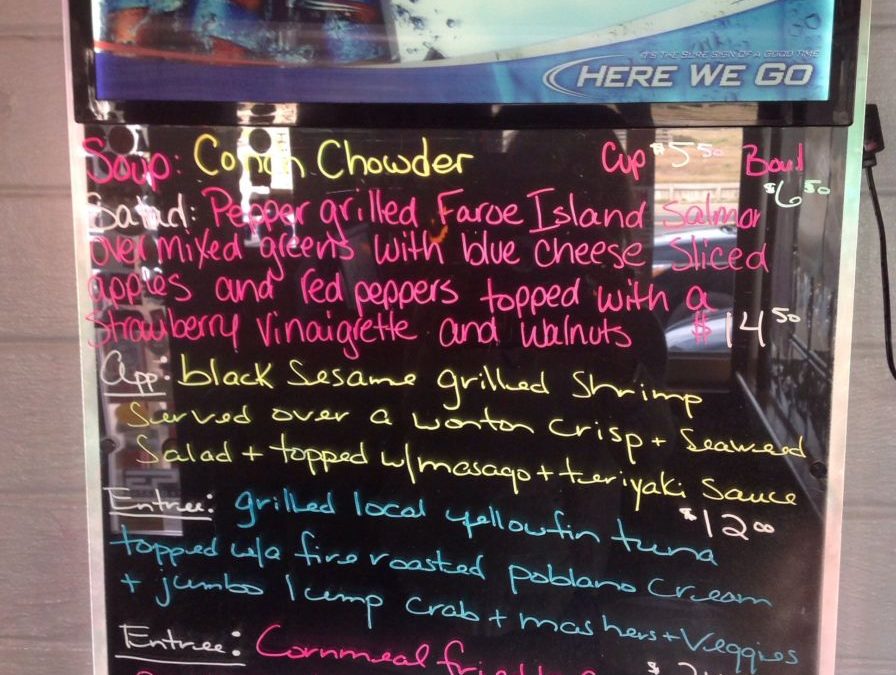 IT'S THE SURE SIGN OF A GOOD TIME
HERE WE GO
Soup: Conch Chowder Cup $5.50 Bowl $6.50
Salad: Pepper grilled Faroe Island Salmon
over mixed greens with blue cheese sliced
apples and red peppers topped with a
Strawberry Vinaigrette and walnuts $14.50
App: black Sesame grilled Shrimp
Served over a wonton crisp + Seaweed
Salad + topped w/masago + teriyaki Sauce
$12.00
Entree: grilled local yellowfin tuna
topped w/a fire roasted poblano cream
+ jumbo lump crab + mashers + Veggies
Entree: Cornmeal